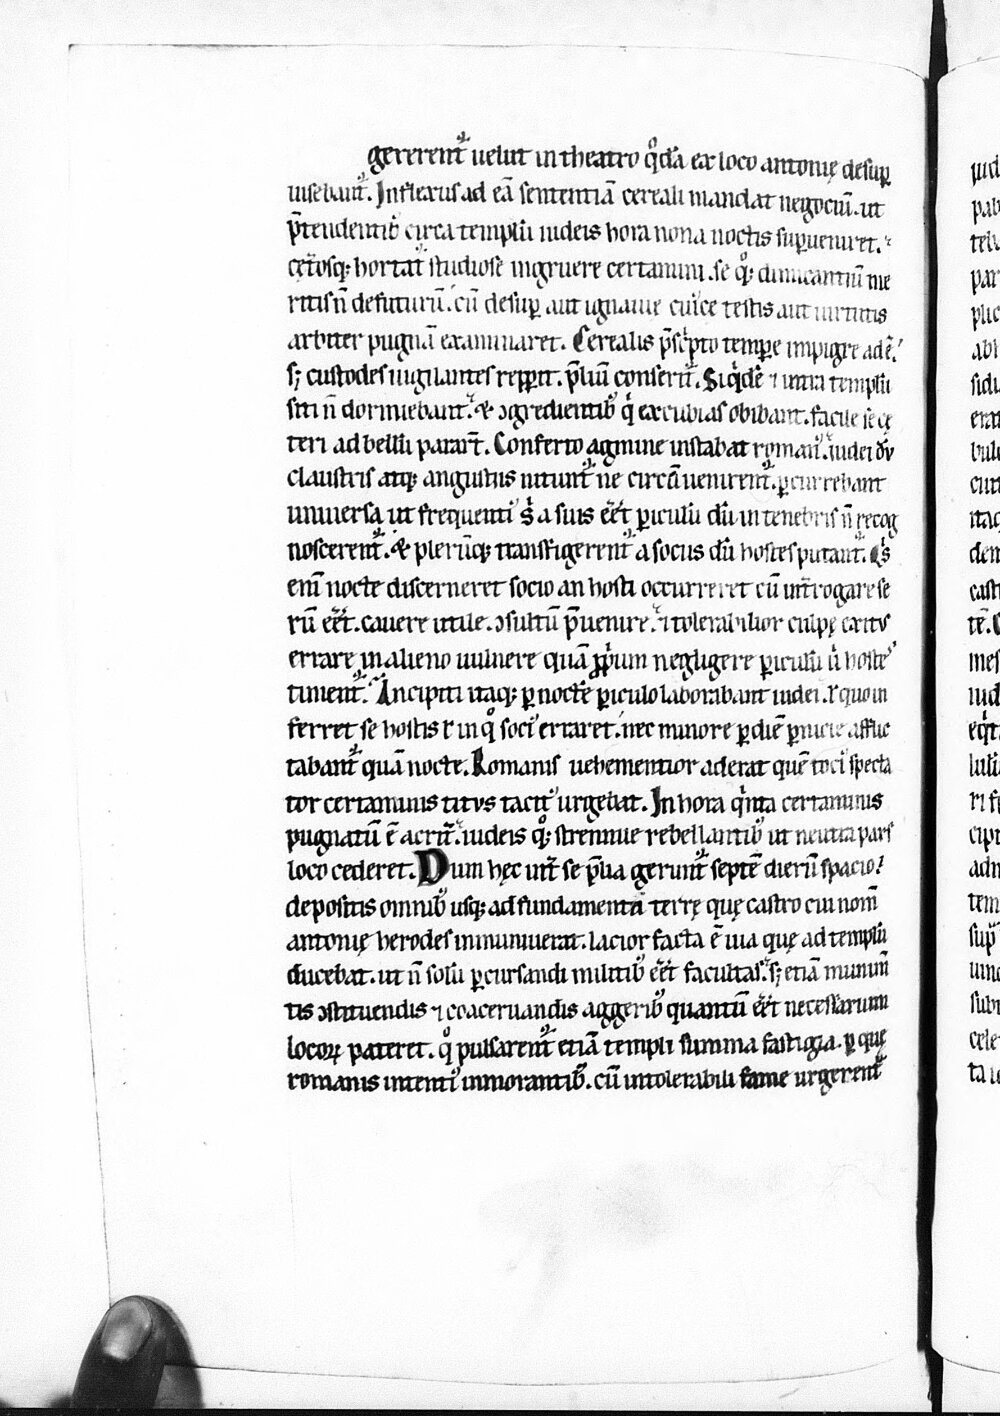 gererent᷑ uelut in theatro qͦdā ex loco antonię desuꝑ
uisebant᷑. Inflexus ad eā sententiā cereali mandat negociū. ut
p̄tendentib᷒ circa templū iudeis hora nona noctis supueniret. ⁊
cęt̄osq; hortat᷑ studiose ingruere certamini. se q͛; dimicantiū me
ritis n̄ defuturū. cū desuꝑ aut ignauie cuiꝰce testis aut uirtutis
arbiter pugnā examinaret. Cerealis p̄scͥpto tempe impigre adē.
s; custodes uigilantes repperit. p̄liū conseritᷣ. Siqͥdē ⁊ intra templū
siti n̄ dormiebant. & ↄgredientib᷒ qͥ excubias obibant. facile se cę
teri ad bellū parart̄. Conferto agmine instabat romani. iudei dū
claustris atq; angustiis nitunt᷑ ne circūuenirent᷑. ꝑcurrebant
uniuersa ut frequentiꝰ s̄ a suis eēt ꝑiculū dū in tenebris n̄ recog
noscerent᷑. & plerūq; transfigerent᷑ a sociis dū hostes putant᷑. Qͥs
enī nocte discerneret socio an hosti occurreret cū int̄rogare se
rū eēt. cauere utile. ↄsultū p̄uenire. ⁊ tolerabilior culpę exitꝰ
errare in alieno uulnere quā ꝓpium negligere ꝑiculū ū hostē
timent᷑. Ancipiti itaq; ꝑ nocte ꝑiculo laborabant iudei. ł quo in
ferret se hostis ł in qͦ sociꝰ erraret. nec minore ꝑ diē ꝑnicie afflic
tabant᷑ quā nocte. Romanis uehementior aderat quē tociꝰ specta
tor certaminis titus tacitꝰ urgebat. In hora qͥnta certaminis
pugnatū ē acrit̄. iudeis q͛; strennue rebellantib᷒ ut neutra pars
loco cederet. Dum hęc int̄ se p̄lia gerunt᷑ septē dierū spacio.
depositis omnib᷒ usq; ad fundamenta terrę quę castro cui nom̄
antonię herodes inmuniuerat. lacior facta ē uia quę ad templū
ducebat. ut n̄ solū ꝑcursandi militib᷒ eēt facultas. s; etiā munim̄
tis ↄstituendis ⁊ coaceruandis aggerib᷒ quantū eēt necessarium
locoꝝ pateret. qͦ pulsarent᷑ etiā templi summa fastigia. ꝑ quę
romanis intentiꝰ inmorantib᷒. cū intolerabili fame urgerent᷑